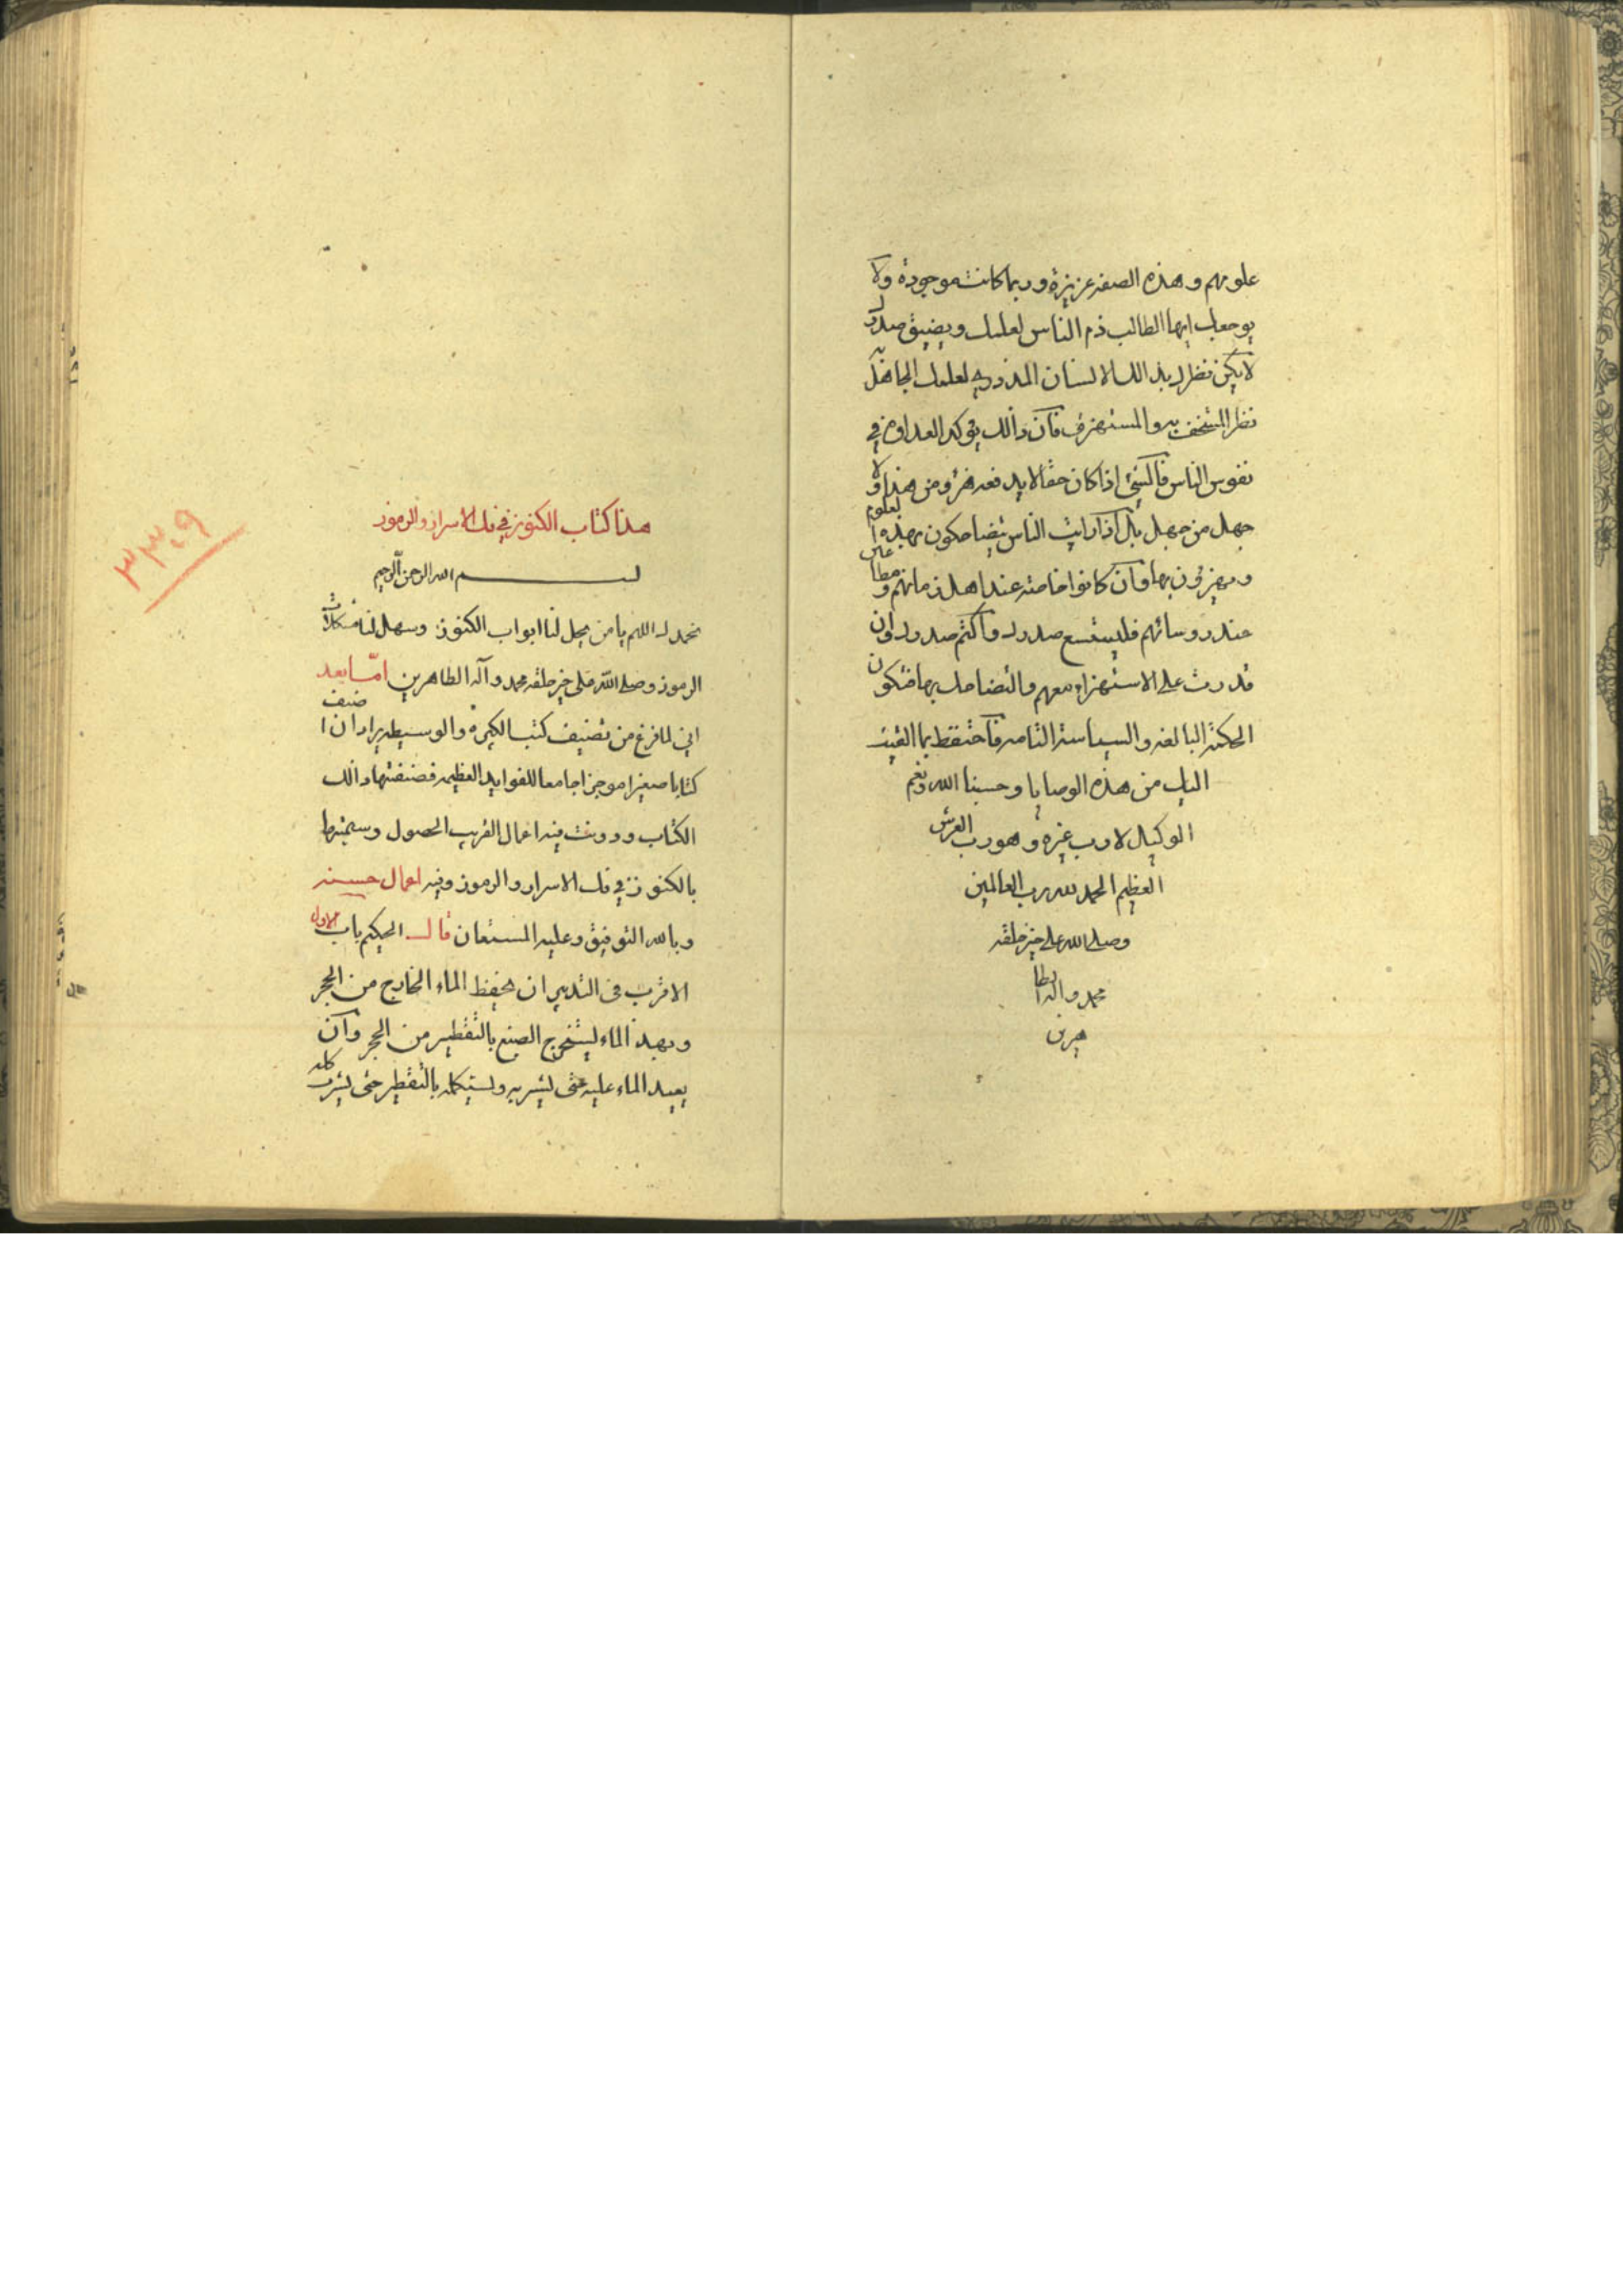 علومهم وهذه الصفة عزيزة وربما كانت موجودة ولا
يوجعك ايها الطالب ذم الناس لعلمك ويضيق صدرك
لا يكن نظرك بذلك الانسان المزدري لعلمك الجاهل
نظر المستخف به والمستهزئ فان ذالك يؤكد العداوة في
نفوس الناس فالشئ اذا كان حقا لا يدفعه هزؤ من هذا ولا
جهل من جهل بل اذا رايت الناس يتضاحكون بهذه العلوم
ويهزؤن بها وان كانوا خاصة عند اهل زمانهم و
عند روسائهم فليتسع صدرك واكتم صدرك وان
قدرت على الاستهزاء معهم والتضاحك بها فتكون
الحكمة البالغة والسياسة التامة فاحتفظ بما القيت
اليك من هذه الوصايا وحسبنا الله ونعم
الوكيل لا رب غيره وهو رب العرش
العظيم الحمد لله رب العالمين
وصلى الله على خير خلقه
محمد واله الطا
هرين
هذا كتاب الكنوز في فك الاسرار والرموز
بسم الله الرحمن الرحيم
نحمدك اللهم يا من لنا ابواب الكنوز وسهل لنا مشكلات
الرموز وصلى الله على خير خلقه محمد وآله الطاهرين امّا بعد
اني لما فرغ من تصنيف كتب الكبيرة والوسيطة اراد ان اصنف
كتابا صغيرا موجزا جامعا للفوايد العظيمة فصنفتها ذالك
الكتاب ودونت فيه اعمال القريب الحصول وسميتها
بالكنوز في فك الاسرار والرموز وفيه اعمال حسنه
وبالله التوفيق وعليه المستعان قال الحكيم باب الاول
الاقرب في التدبير ان يحفظ الماء الخارج من الحجر
وبهذ الماء ليستخرج الصبغ بالتقطير من الحجر وان
يعيد الماء عليه حتى يشربه ويستكمله بالتقطير حتى يشرب كله
٣٣٤٩